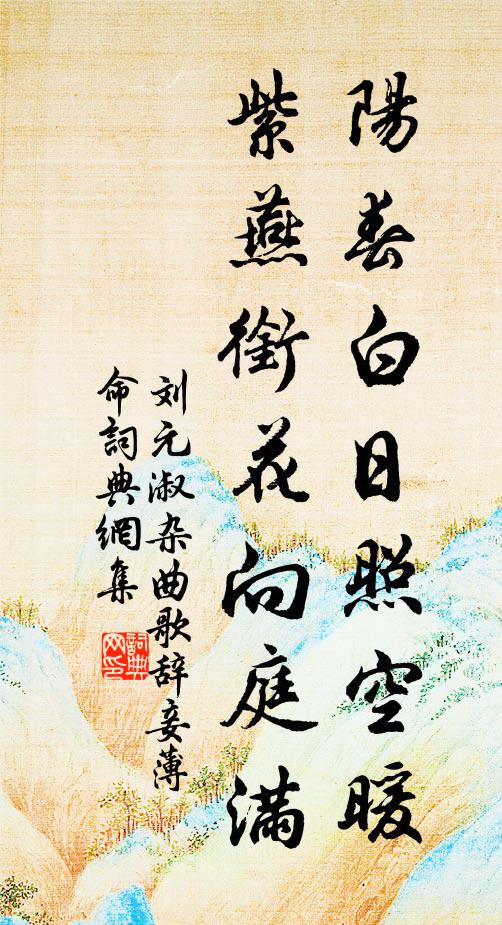 陽春白日照空暖
紫燕銜花向庭滿
刘元淑杂曲歌辞妾薄
命詞典網集
詞典网印